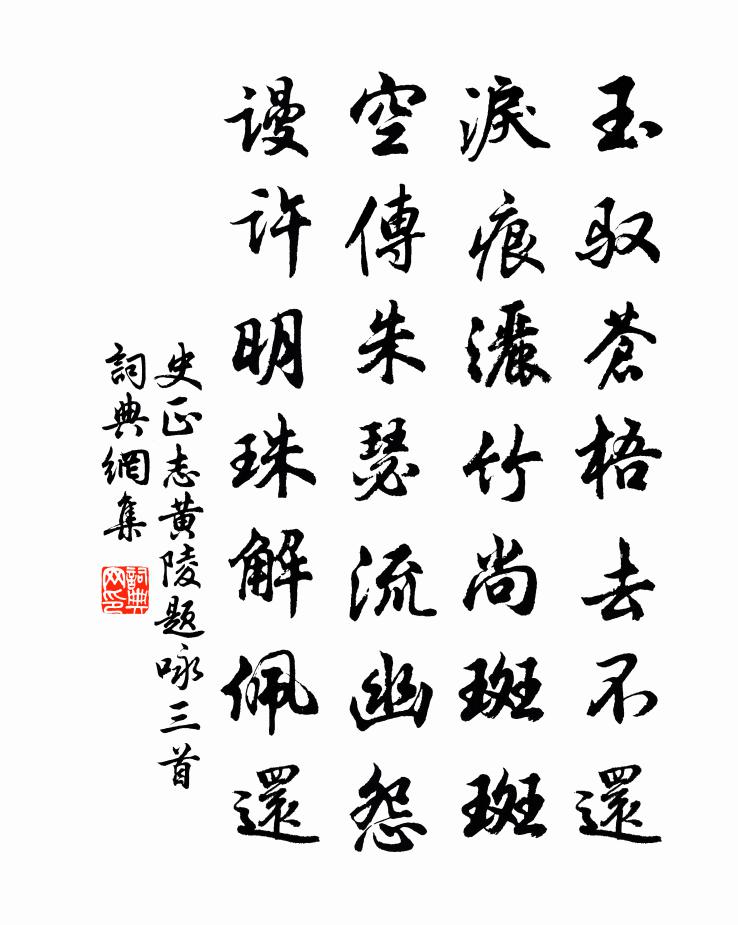 玉驭蒼梧去不還
淚痕灑竹尚斑斑
空傳朱瑟流幽怨
谩許明珠解佩還
史正志黄陵题咏三首
詞典網集
詞典
网印